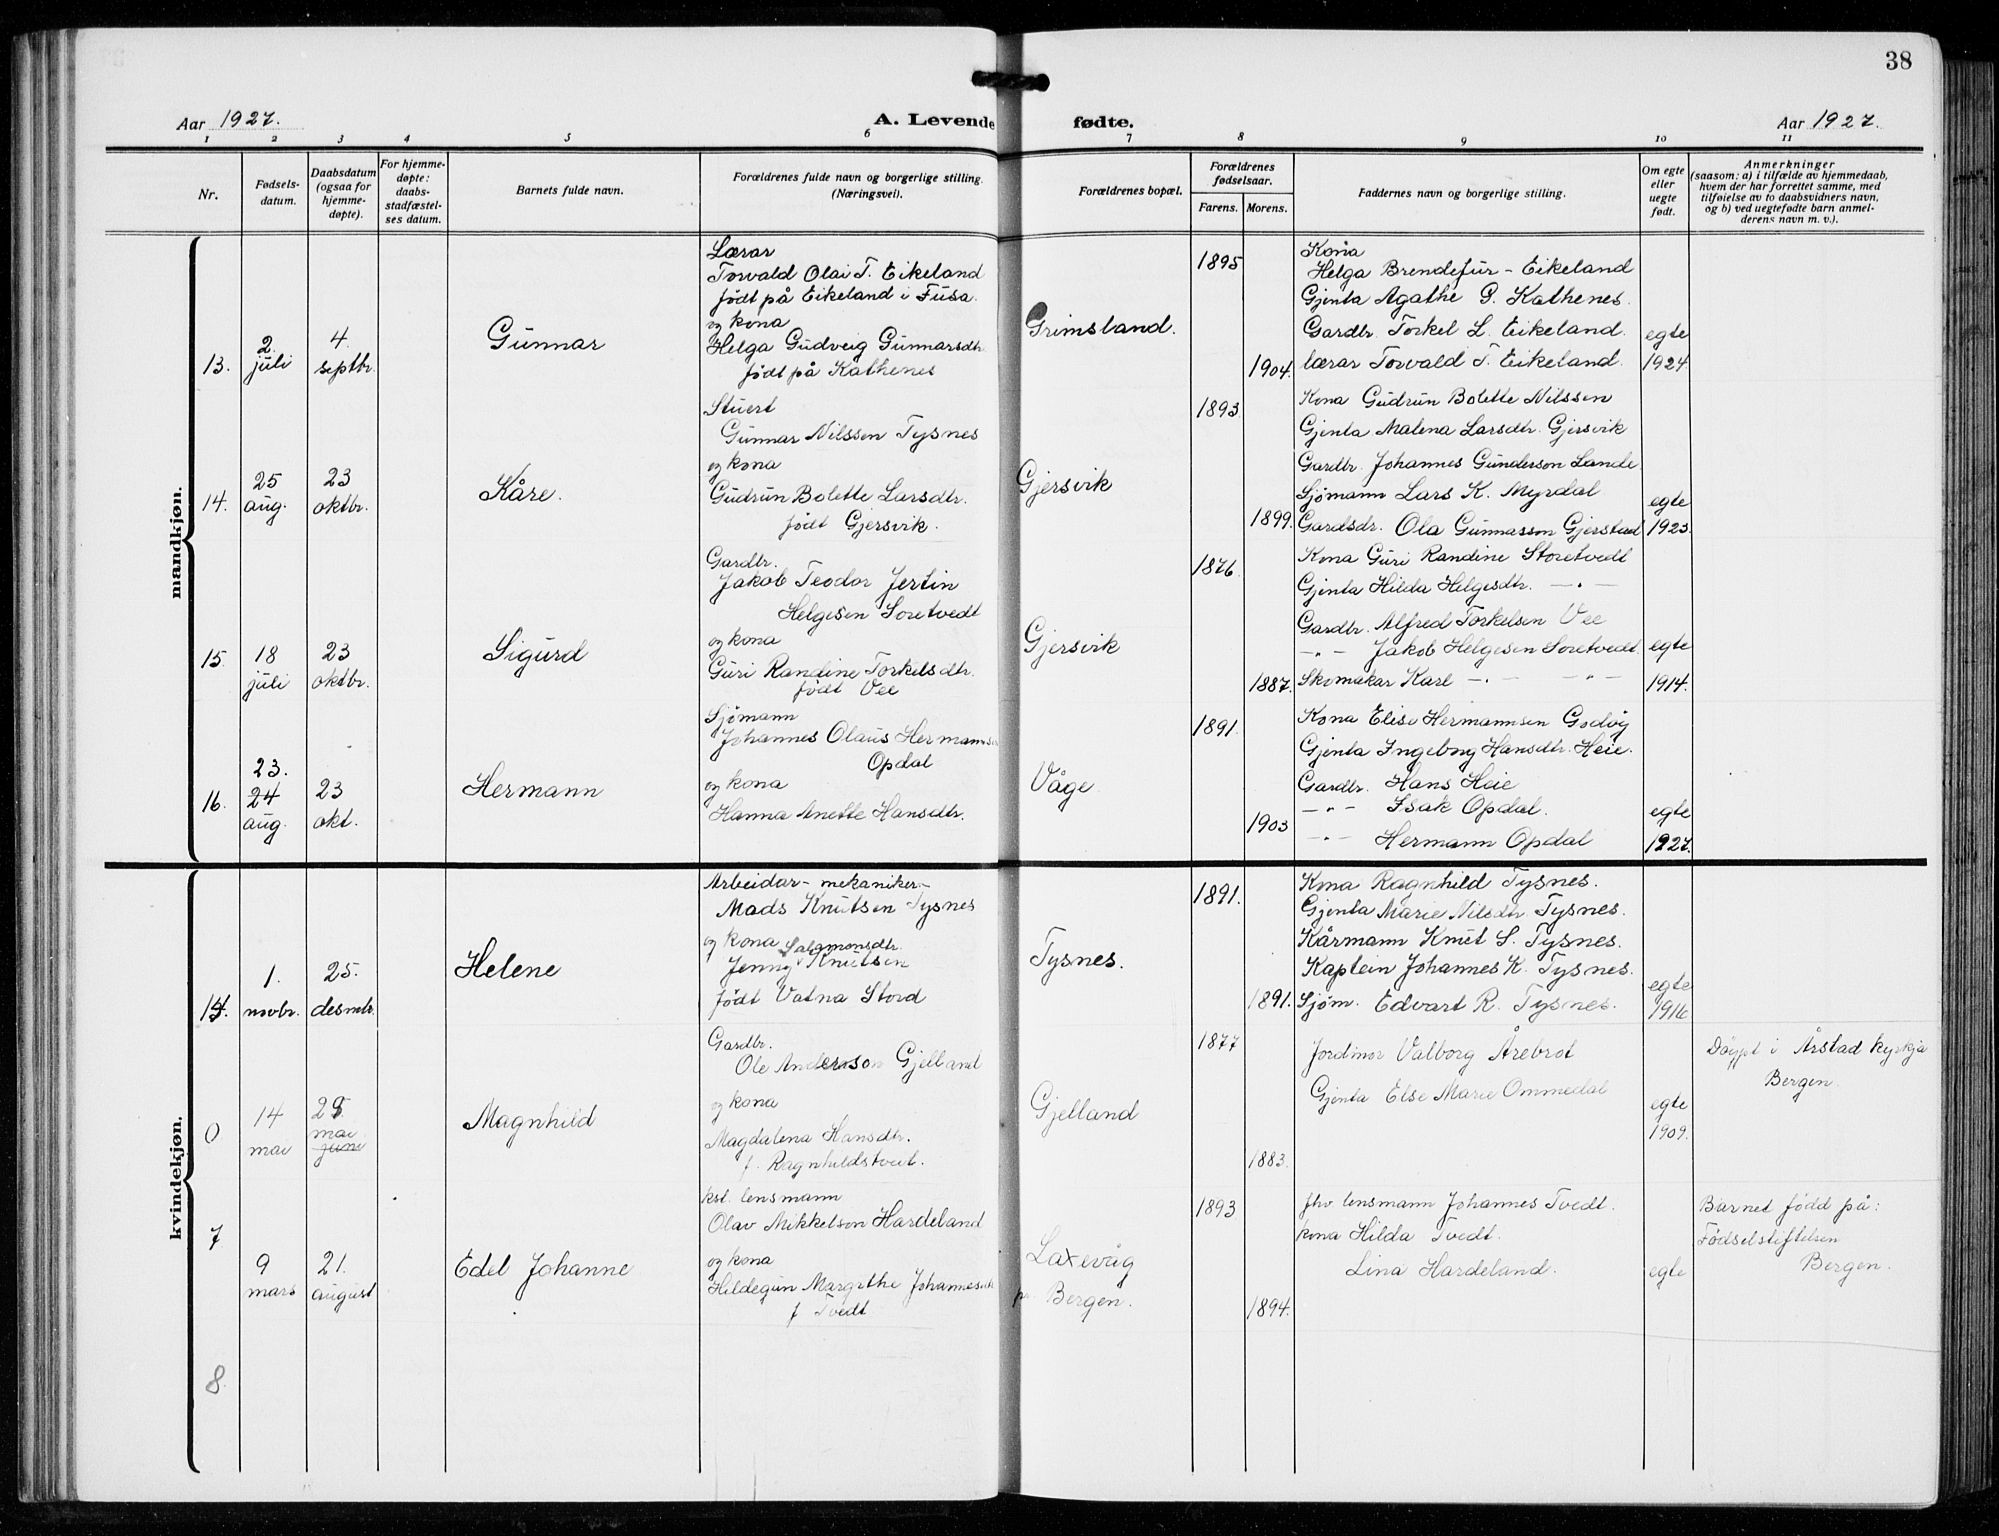 38
Aar 1927.
A. Levende fødte.
Aar 1927.
1 2 3 4 5 6 7 8 9 10 11
Nr.
Fødsels-
datum.
Daabsdatum
(ogsaa for
hjemme-
døpte).
For hjemme-
døpte:
daabs-
stadfæstel-
ses datum.
Barnets fulde navn.
Forældrenes fulde navn og borgerlige stilling
(Næringsvei).
Forældrenes bopæl.
Forældrenes
fødselsaar.
Farens. Morens.
Faddernes navn og borgerlige stilling.
Om egte
eller
uegte
født.
Anmerkninger
(saasom: a) i tilfælde av hjemmedaab,
hvem der har forrettet samme, med
tilføielse av to daabsvidners navn,
og b) ved uegtefødte barn anmel-
derens navn m. v.).
mandkjøn.
13.
2.
juli
4.
septbr.
Gunnar
Lærar
Torvald Olai T. Eikeland
født på Eikeland i Fusa.
og kona
Helga Gudveig Gunnarsdtr
født på Kathenes
Grimsland.
1895
1904.
Kona
Helga Brendefur - Eikeland
Gjenta Agathe G. Kathenes.
Gardbr. Torkel L. Eikeland.
lærar Torvald T. Eikeland.
egte
1924.
14.
25
aug.
23
oktbr.
Kåre.
Stuert
Gunnar Nilssen Tysnes
og kona
Gudrun Bolette Larsdtr.
født Gjersvik.
Gjersvik
1893
1899.
Kona Gudrun Bolette Nilssen
Gjenta Malena Larsdtr. Gjersvik
Gardbr. Johannes Gunderson Lande
Sjømann Lars K. Myrdal
Gardsdr. Ola Gunnarsson Gjerstad
egte
1923.
15.
18
juli
23
oktbr.
Sigurd
Gardbr.
Jakob Teodor Jertin
Helgesen Soretvedt
og kona
Guri Randine Torkelsdtr.
født Vee
Gjersvik
1876
1887.
Kona Guri Randine Storetvedt
Gjenta Hilda Helgesdtr. — " —
Gardbr. Alfred Torkelsen Vee
— " — Jakob Helgesen Soretvedt
Skomakar Karl — " — — " —
egte
1914.
16.
23.
24
aug.
23
okt.
Hermann
Sjømann
Johannes Olaus Hermannsen
Opdal
og kona
Hanna Anette Hansdtr.
Våge
1891.
1903
Kona Elise Hermannsen Godøy
Gjenta Ingeborg Hansdtr. Heie.
Gardbr. Hans Heie
— " — Isak Opdal.
— " — Hermann Opdal
egte
1927.
kvindekjøn.
1.
novbr.
25.
desmbr.
Helene
Arbeidar - mekaniker-
Mads Knutsen Tysnes
og kona Salamonsdtr.
Jenny Knutsen
født Vatna Stord
Tysnes.
1891.
1891.
Kona Ragnhild Tysnes.
Gjenta Marie Nilsdtr. Tysnes.
Kårmann Knut S. Tysnes.
Kaptein Johannes K. Tysnes.
Sjøm. Edvart R. Tysnes.
egte
1916
0
14
mai
mai
juni
Magnhild
Gardbr.
Ole Anderson Gjelland
og kona
Magdalena Hansdtr.
f. Ragnhildstveit.
Gjelland
1877
1883.
Jordmor Valborg Årebrot
Gjenta Else Marie Ommedal
egte
1909.
Døypt i Årstad kyrkja
Bergen.
7
9
mars
21.
august
Edel Johanne
kst. lensmann
Olav Mikkelson Hardeland
og kona
Hildegun Margrethe Johannesdtr
f Tvedt
Laxevåg
pr. Bergen.
1893
1894.
fhv lensmann Johannes Tvedt.
kona Hilda Tvedt.
Lina Hardeland.
egte
Barnet fødd på:
Fødselstiftelsen
Bergen.
8.